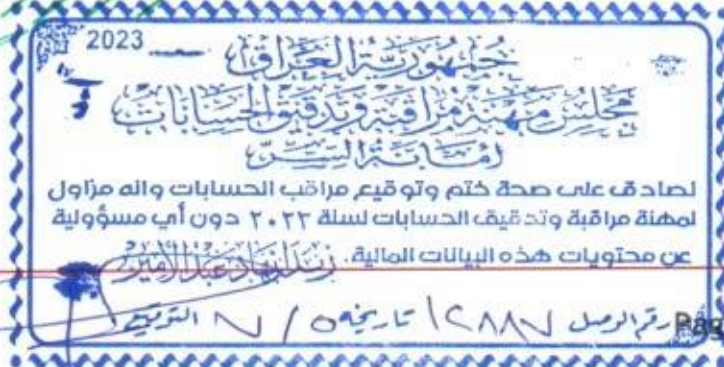 2023
جمهورية العراق
مجلس مهنة مراقبة وتدقيق الحسابات
امانة السر
نصادق على صحة ختم وتوقيع مراقب الحسابات وانه مزاول
لمهنة مراقبة وتدقيق الحسابات لسنة ٢٠٢٣ دون أي مسؤولية
عن محتويات هذه البيانات المالية.
رقم الوصل ١٢٨٨٧ تاريخه ٧/٥ التوقيع
Pag